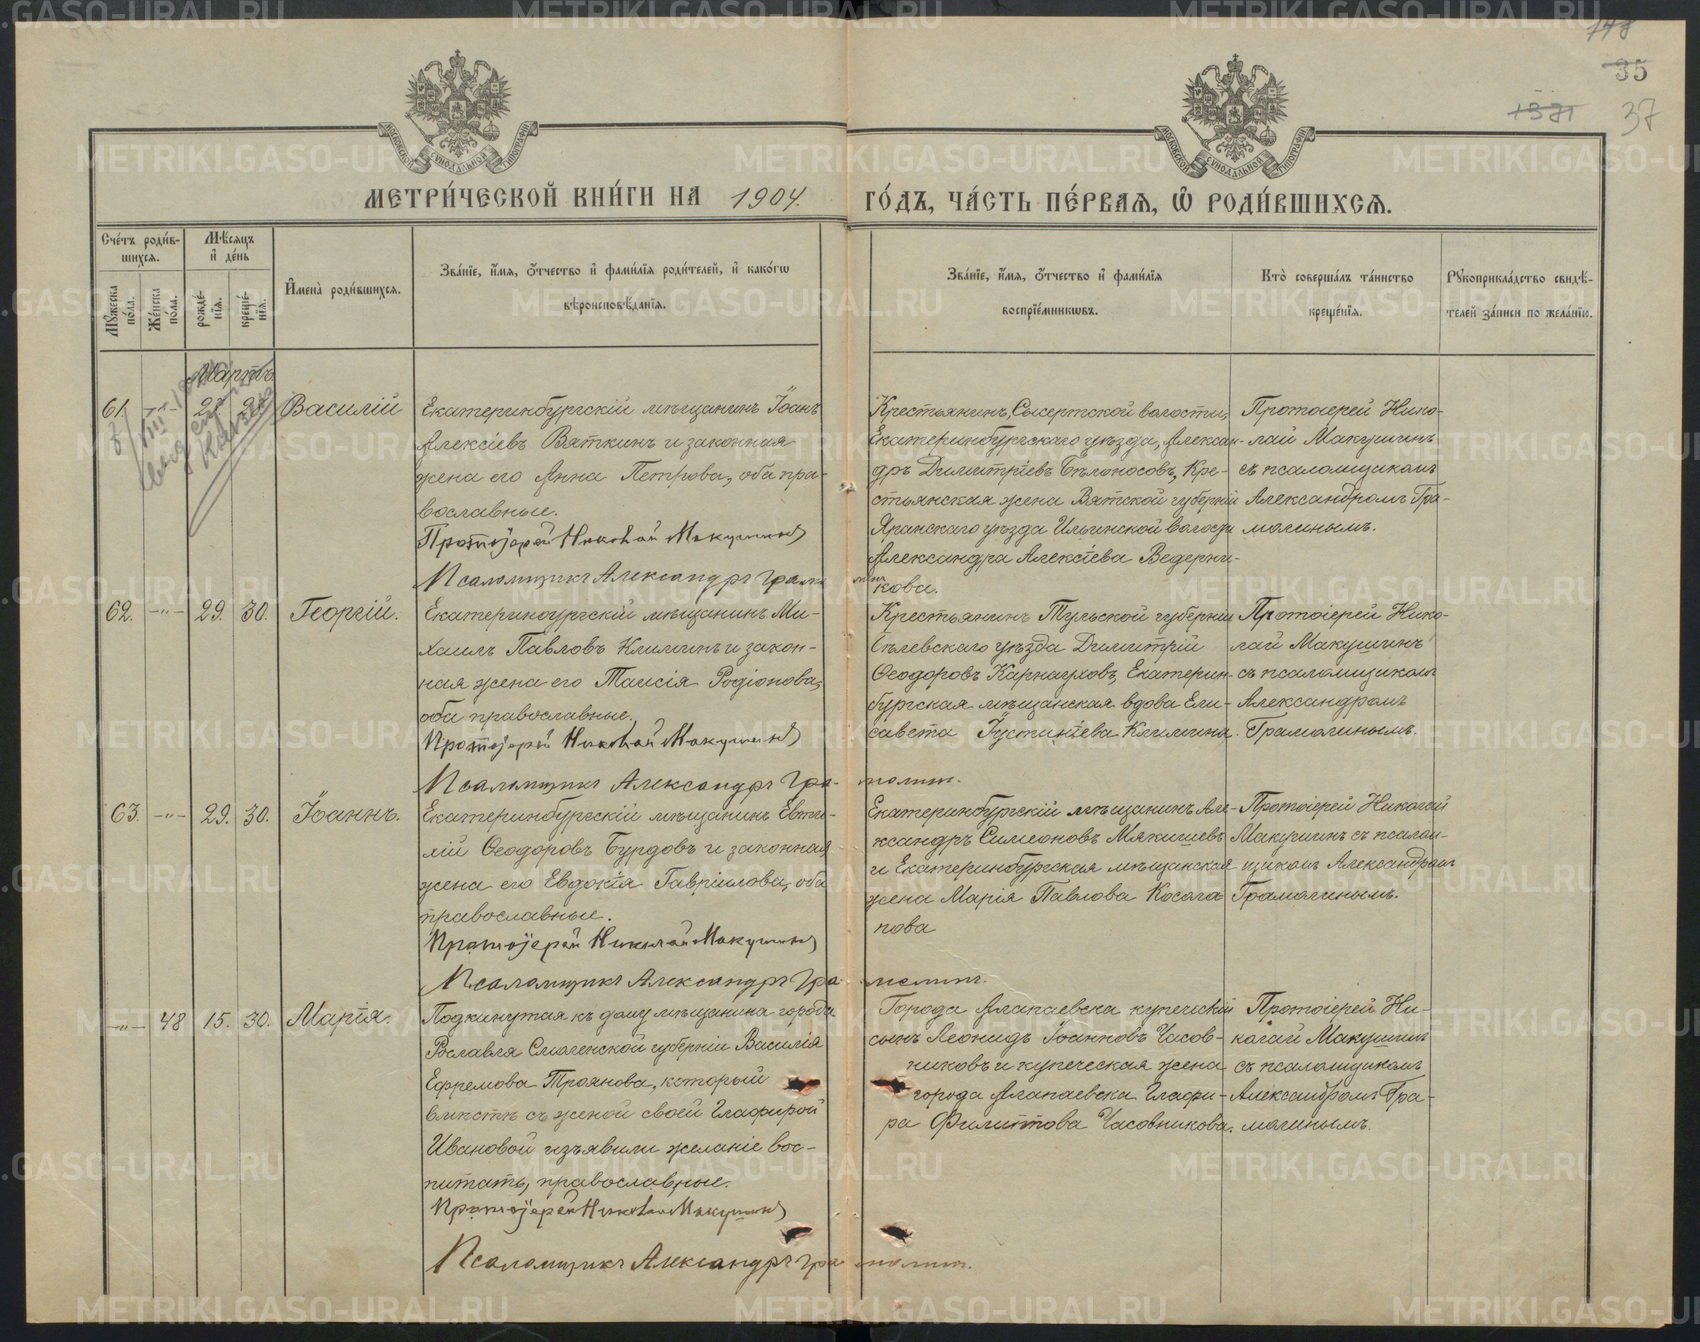 148
35
1371
37
МОСКОВСКОЙ СѴНОДАЛЬНОЙ ТИПОГРАФІИ
МОСКОВСКОЙ СѴНОДАЛЬНОЙ ТИПОГРАФІИ
МЕТРИ́ЧЕСКОЙ КНИ́ГИ НА 1904. ГО́ДЪ, ЧА́СТЬ ПЕ́РВАѦ, Ѡ҆ РОДИ́ВШИХСѦ.
Сче́тъ роди́в-
шихсѧ.
Мꙋжеска по́ла.
Же́нска по́ла.
Мѣ́сѧцъ
и҆ де́нь
рожде́-
нїѧ.
креще́-
нїѧ.
И҆мена̀ роди́вшихсѧ.
Зва́нїе, и҆́мѧ, ѻ҆́тчество и҆ фами́лїѧ роди́телей, и҆ како́гѡ
вѣроисповѣ́данїѧ.
Зва́нїе, и҆́мѧ, ѻ҆́тчество и҆ фами́лїѧ
воспрїе́мникѡвъ.
Кто̀ соверша́лъ та́инство
креще́нїѧ.
Рꙋкоприкла́дство свидѣ́-
телей за́писи по жела́нїю.
Мартъ
61. -"- 27 28 Василій
Екатеринбургскій мѣщанинъ Іоанъ
Алексіевъ Вяткинъ и законная
жена его Анна Петрова, оба пра-
вославные.
Протоіерей Николай Макушинъ
Псаломщикъ Александръ Грамо
линъ
Крестьянинъ, Сысертской волости,
Екатеринбургскаго уѣзда, Алексан-
дръ Димитріевъ Бѣлоносовъ, Кре-
стьянская жена Вятской губерніи
Яранскаго уѣзда Ильинской волости
Александра Алексіева Ведерни-
кова.
Протоіерей Нико-
лай Макушинъ
съ псаломщикомъ
Александромъ Гра-
молинымъ.
62. -"- 29. 30. Георгій.
Екатеринбургскій мѣщанинъ Ми-
хаилъ Павловъ Климинъ и закон-
ная жена его Таисія Родіонова,
оба православные.
Протоіерей Николай Макушинъ
Псаломщикъ Александръ Гра-
молинъ.
Крестьянинъ Тульской губерніи
Бѣлевскаго уѣзда Димитрій
Ѳеодоровъ Карнауховъ, Екатерин-
бургская мѣщанская вдова Ели-
савета Іустиніева Климина.
Протоіерей Нико-
лай Макушинъ
съ псаломщикомъ
Александромъ
Грамолинымъ.
63. -"- 29. 30. Іоаннъ.
Екатеринбургскій мѣщанинъ Евти-
мій Ѳеодоровъ Бурдовъ и законная
жена его Евдокія Гавріилова, оба
православные.
Протоіерей Николай Макушинъ
Псаломщикъ Александръ Гра
молинъ.
Екатеринбургскій мѣщанинъ Але-
ксандръ Симеоновъ Мякишевъ
и Екатеринбургская мѣщанская
жена Марія Павлова Косола
пова
Протоіерей Николай
Макушинъ съ псалом-
щикомъ Александромъ
Грамолинымъ.
-"- 48 15. 30. Марія.
Подкинутая къ дому мѣщанина города
Рославля Смоленской губерніи Василія
Ефремова Троянова, который
вмѣстѣ съ женой своей Глафирой
Ивановой изъявили желаніе вос-
питать, православные.
Протоіерей Николай Макушинъ
Псаломщикъ Александръ Гра
молинъ.
Города Алапаевска купеческій
сынъ Леонидъ Іоанновъ Часов-
никовъ и купеческая жена
города Алапаевска Глафи-
ра Филиппова Часовникова.
Протоіерей Ни-
колай Макушинъ
съ псаломщикомъ
Александромъ Гра-
молинымъ.
METRIKI.GASO-URAL.RU